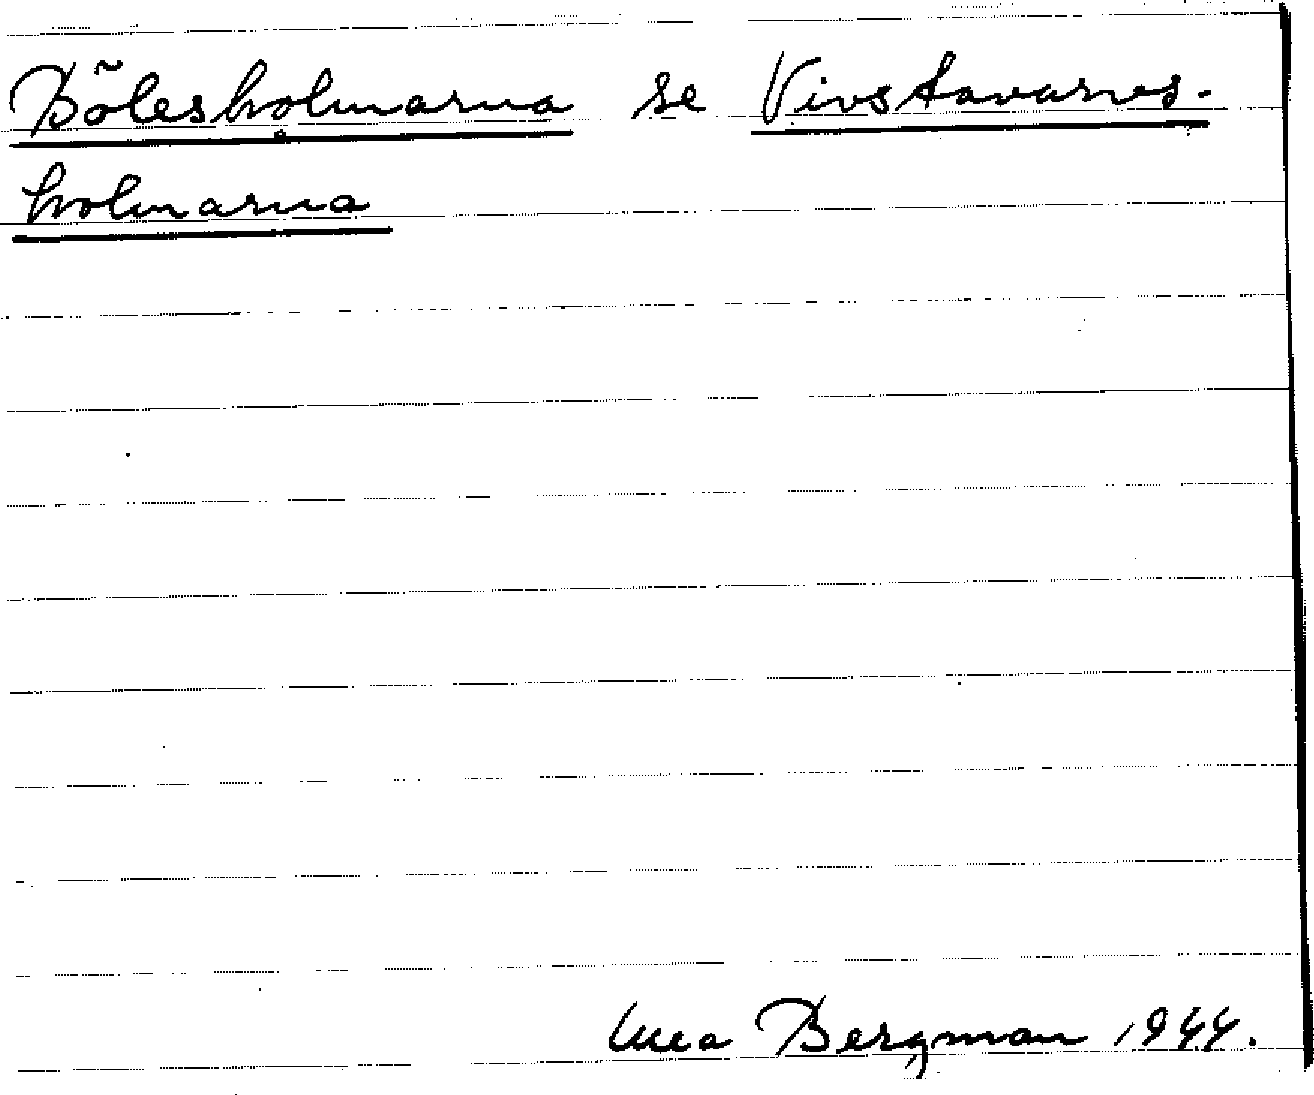 Bölesholmarna se Vivstavarvs-
holmarna
Bergman 1944.